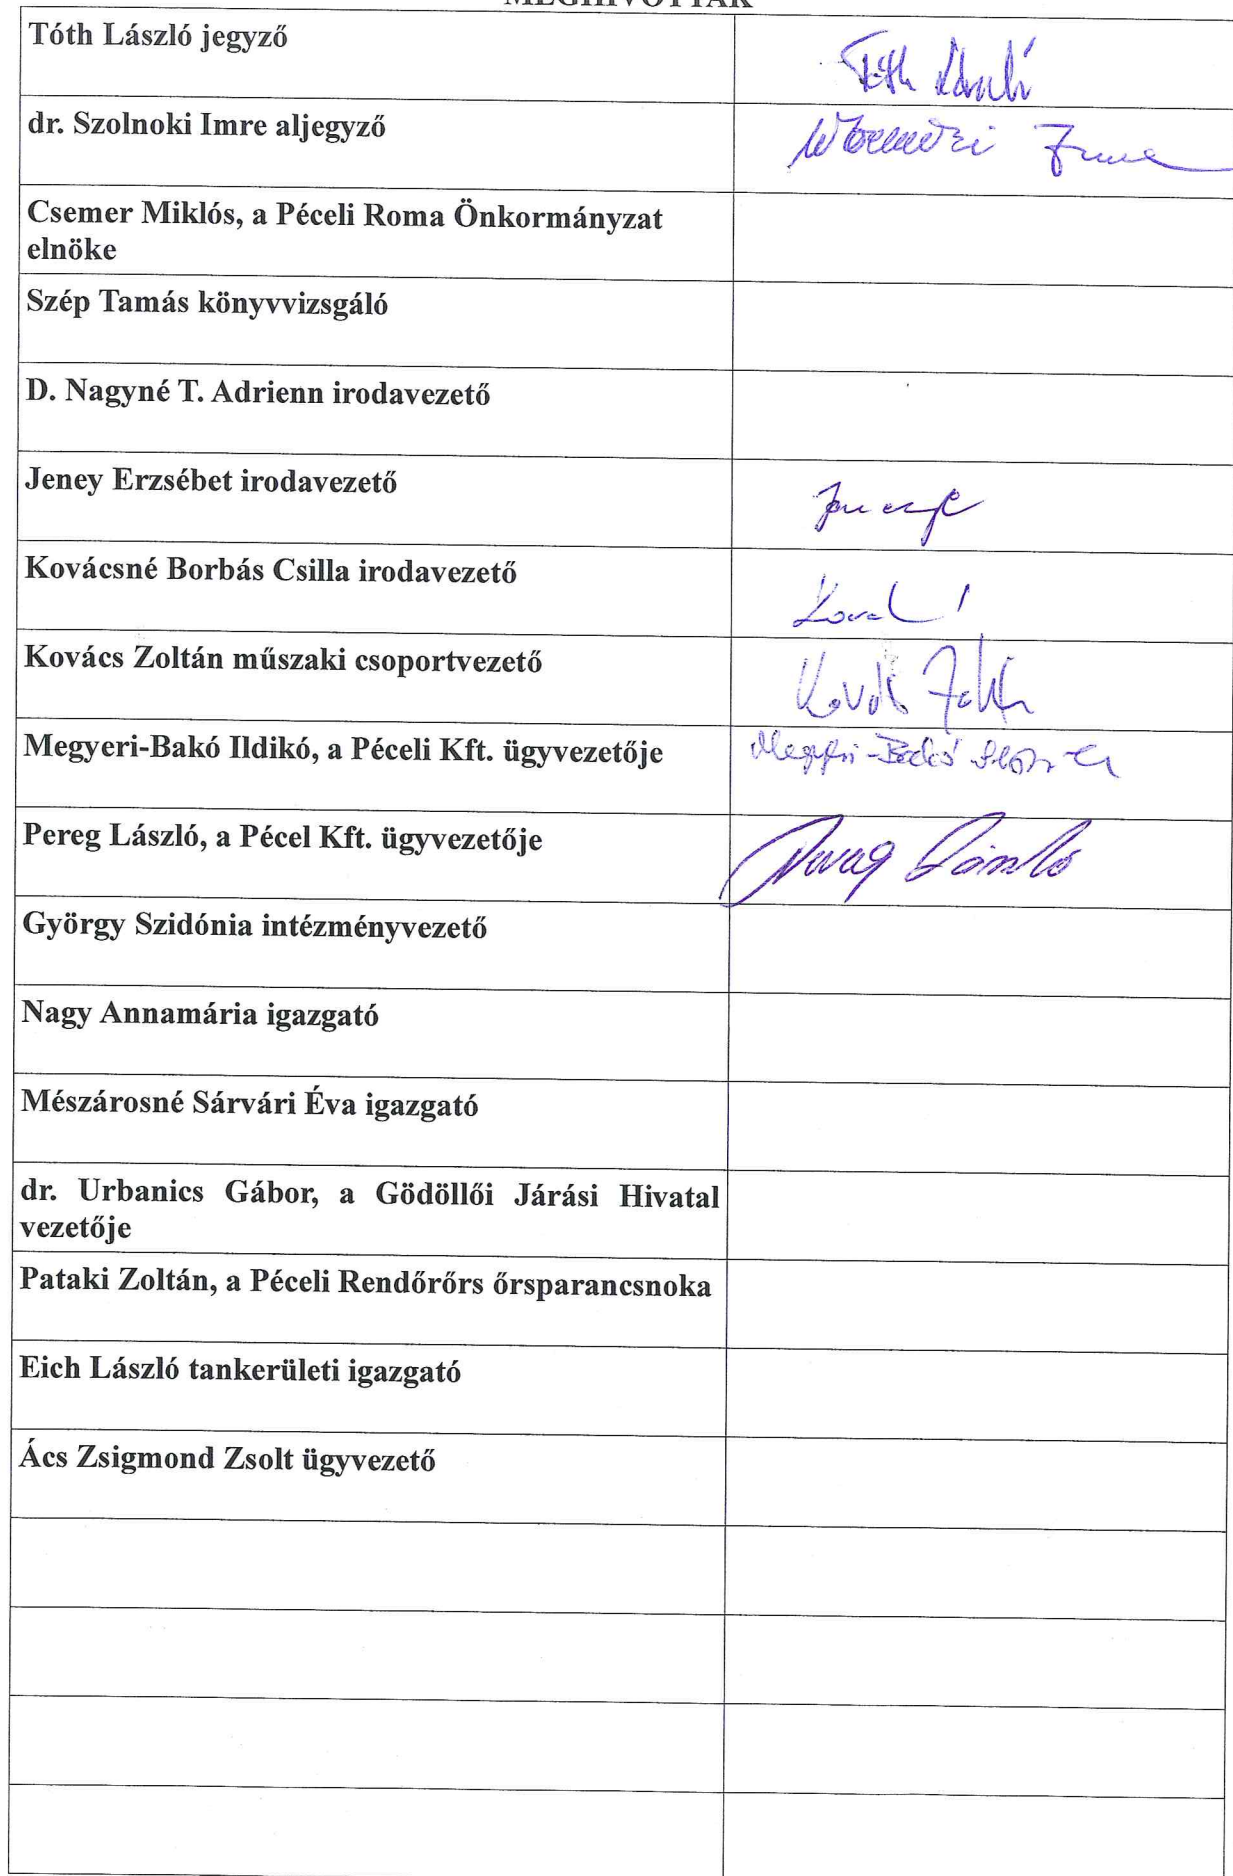 MEGHÍVOTTAK
Tóth László jegyző
Tóth László
dr. Szolnoki Imre aljegyző
Imre
Csemer Miklós, a Péceli Roma Önkormányzat
elnöke
Szép Tamás könyvvizsgáló
D. Nagyné T. Adrienn irodavezető
Jeney Erzsébet irodavezető
Kovácsné Borbás Csilla irodavezető
Kovács Zoltán műszaki csoportvezető
Kovács Zoltán
Megyeri-Bakó Ildikó, a Péceli Kft. ügyvezetője
Megyeri-Bakó Ildikó
Pereg László, a Pécel Kft. ügyvezetője
Pereg László
György Szidónia intézményvezető
Nagy Annamária igazgató
Mészárosné Sárvári Éva igazgató
dr. Urbanics Gábor, a Gödöllői Járási Hivatal
vezetője
Pataki Zoltán, a Péceli Rendőrőrs őrsparancsnoka
Eich László tankerületi igazgató
Ács Zsigmond Zsolt ügyvezető